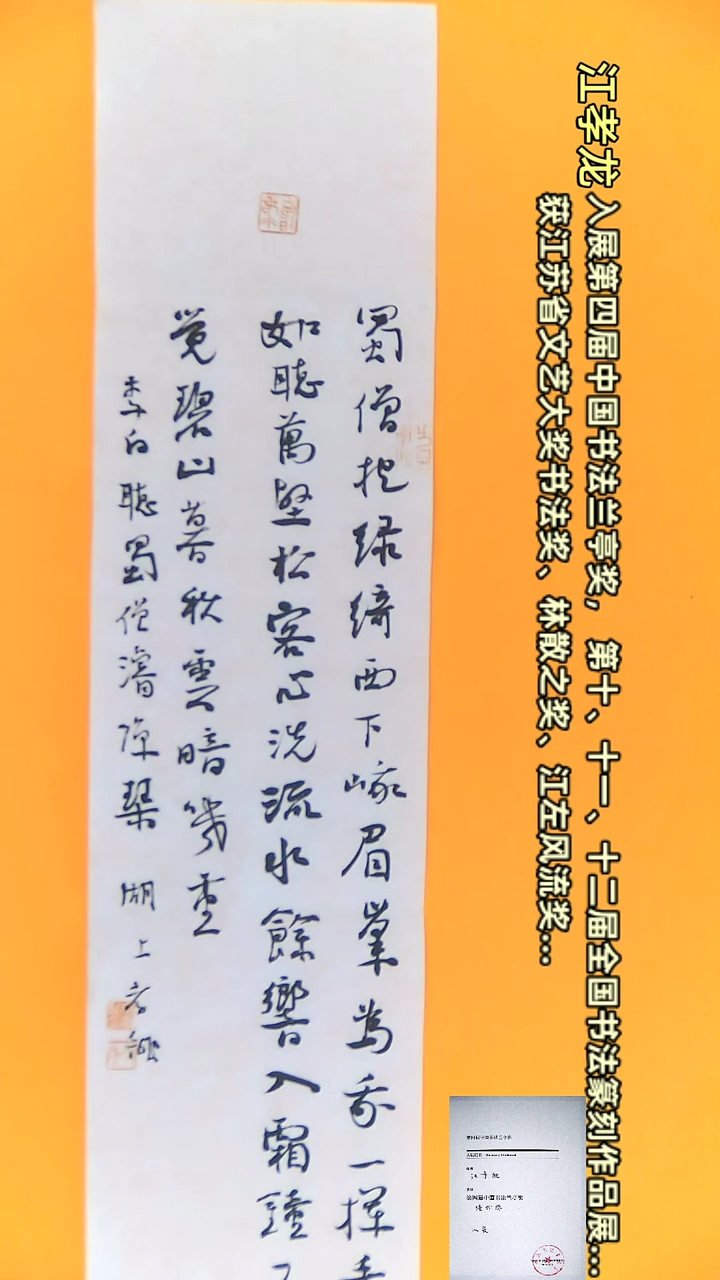 江孝龙 入展第四届中国书法兰亭奖，第十、十一、十二届全国书法篆刻作品展...
获江苏省文艺大奖书法奖、林散之奖、江左风流奖...
蜀僧抱绿綺西下峨眉峯為我一揮手
如聽萬壑松客心洗流水餘響入霜鐘不
覺碧山暮秋雲暗幾重
李白聽蜀僧濬弹琴 湖上孝龍